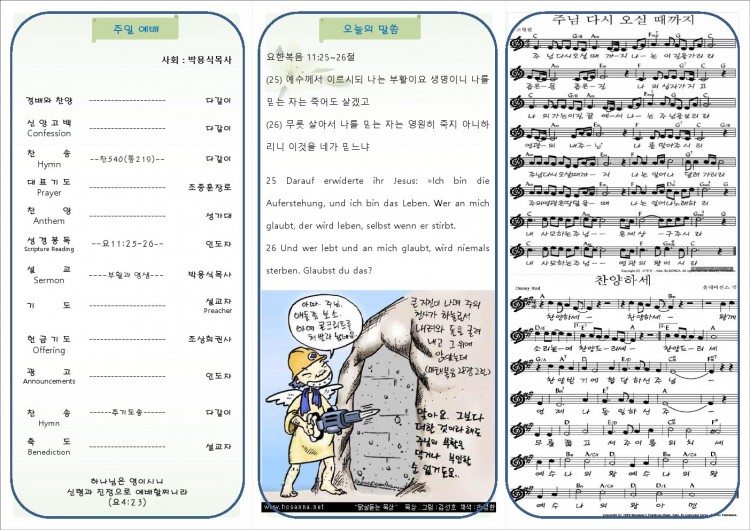 주일 예배
사회 : 박용식목사
경배와 찬양 ------------------ 다같이
신앙고백 ------------------ 다같이
Confession
찬 송 --찬540(통219)-- 다같이
Hymn
대표기도 ------------------ 조종훈장로
Prayer
찬 양 ------------------ 성가대
Anthem
성경봉독 --요11:25-26-- 인도자
Scripture Reading
설 교 ----부활과 영생--- 박용식목사
Sermon
기 도 ------------------ 설교자
Preacher
헌금기도 ------------------ 조상희권사
Offering
광 고 ------------------ 인도자
Announcements
찬 송 -----주기도송------ 다같이
Hymn
축 도 ------------------ 설교자
Benediction
하나님은 영이시니
신령과 진정으로 예배할찌니라
(요4:23)
오늘의 말씀
요한복음 11:25~26절
(25) 예수께서 이르시되 나는 부활이요 생명이니 나를
믿는 자는 죽어도 살겠고
(26) 무릇 살아서 나를 믿는 자는 영원히 죽지 아니하
리니 이것을 네가 믿느냐
25 Darauf erwiderte ihr Jesus: »Ich bin die
Auferstehung, und ich bin das Leben. Wer an mich
glaubt, der wird leben, selbst wenn er stirbt.
26 Und wer lebt und an mich glaubt, wird niemals
sterben. Glaubst du das?
아따, 주님.
큰 지진이 나며 주의
천사가 하늘로서
내려와 돌을 굴려
내고 그 위에
앉았는데
(마태복음 28장 2절)
맞아요. 그보다
더한 것이라해도
주님의 부활을
막거나 부인할
수 없거든요..
www.hosanna.net
"닭살돋는 묵상" 묵상 . 그림 : 김선호 채색 :
주님 다시 오실 때까지
주님다시오실 때까지 나는 이길을가리라
좁은문 좁은길 나의십자가지고
나의가는이길 끝에서나는 주님을보리라
영광의 내주님 나를 맞아주시리
주님다시오실때까지 나는 일어나 달려가리라
주의영광온땅덮을때 나는 일어나노래하리
내 사모하는주님 온세상 구주시라
내 사모하는주님 영광의 왕이시라
찬양하세
Danny Reed
찬양하세 찬양하세 왕께
소리높여 찬양드리세 찬양드리세
찬양받기에 합당하신주님
언제나 동일하신주
무릎꿇고 서주이름의치세
예수나의왕 예수나의왕
예수나의왕 아멘